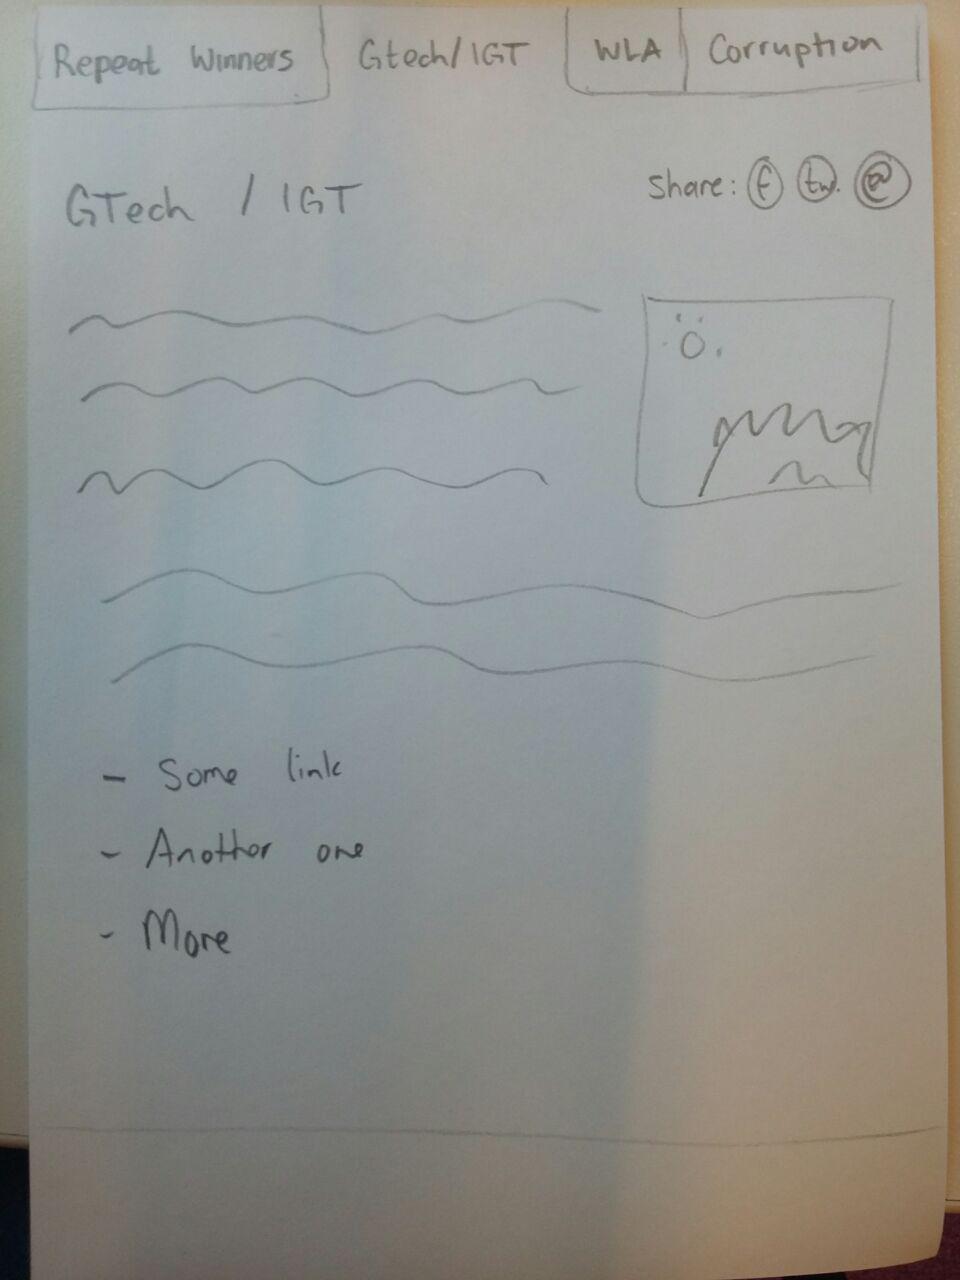 Repeat Winners Gtech/IGT WLA Corruption
GTech / IGT
Share: f tw. @
- Some link
- Another one
- More